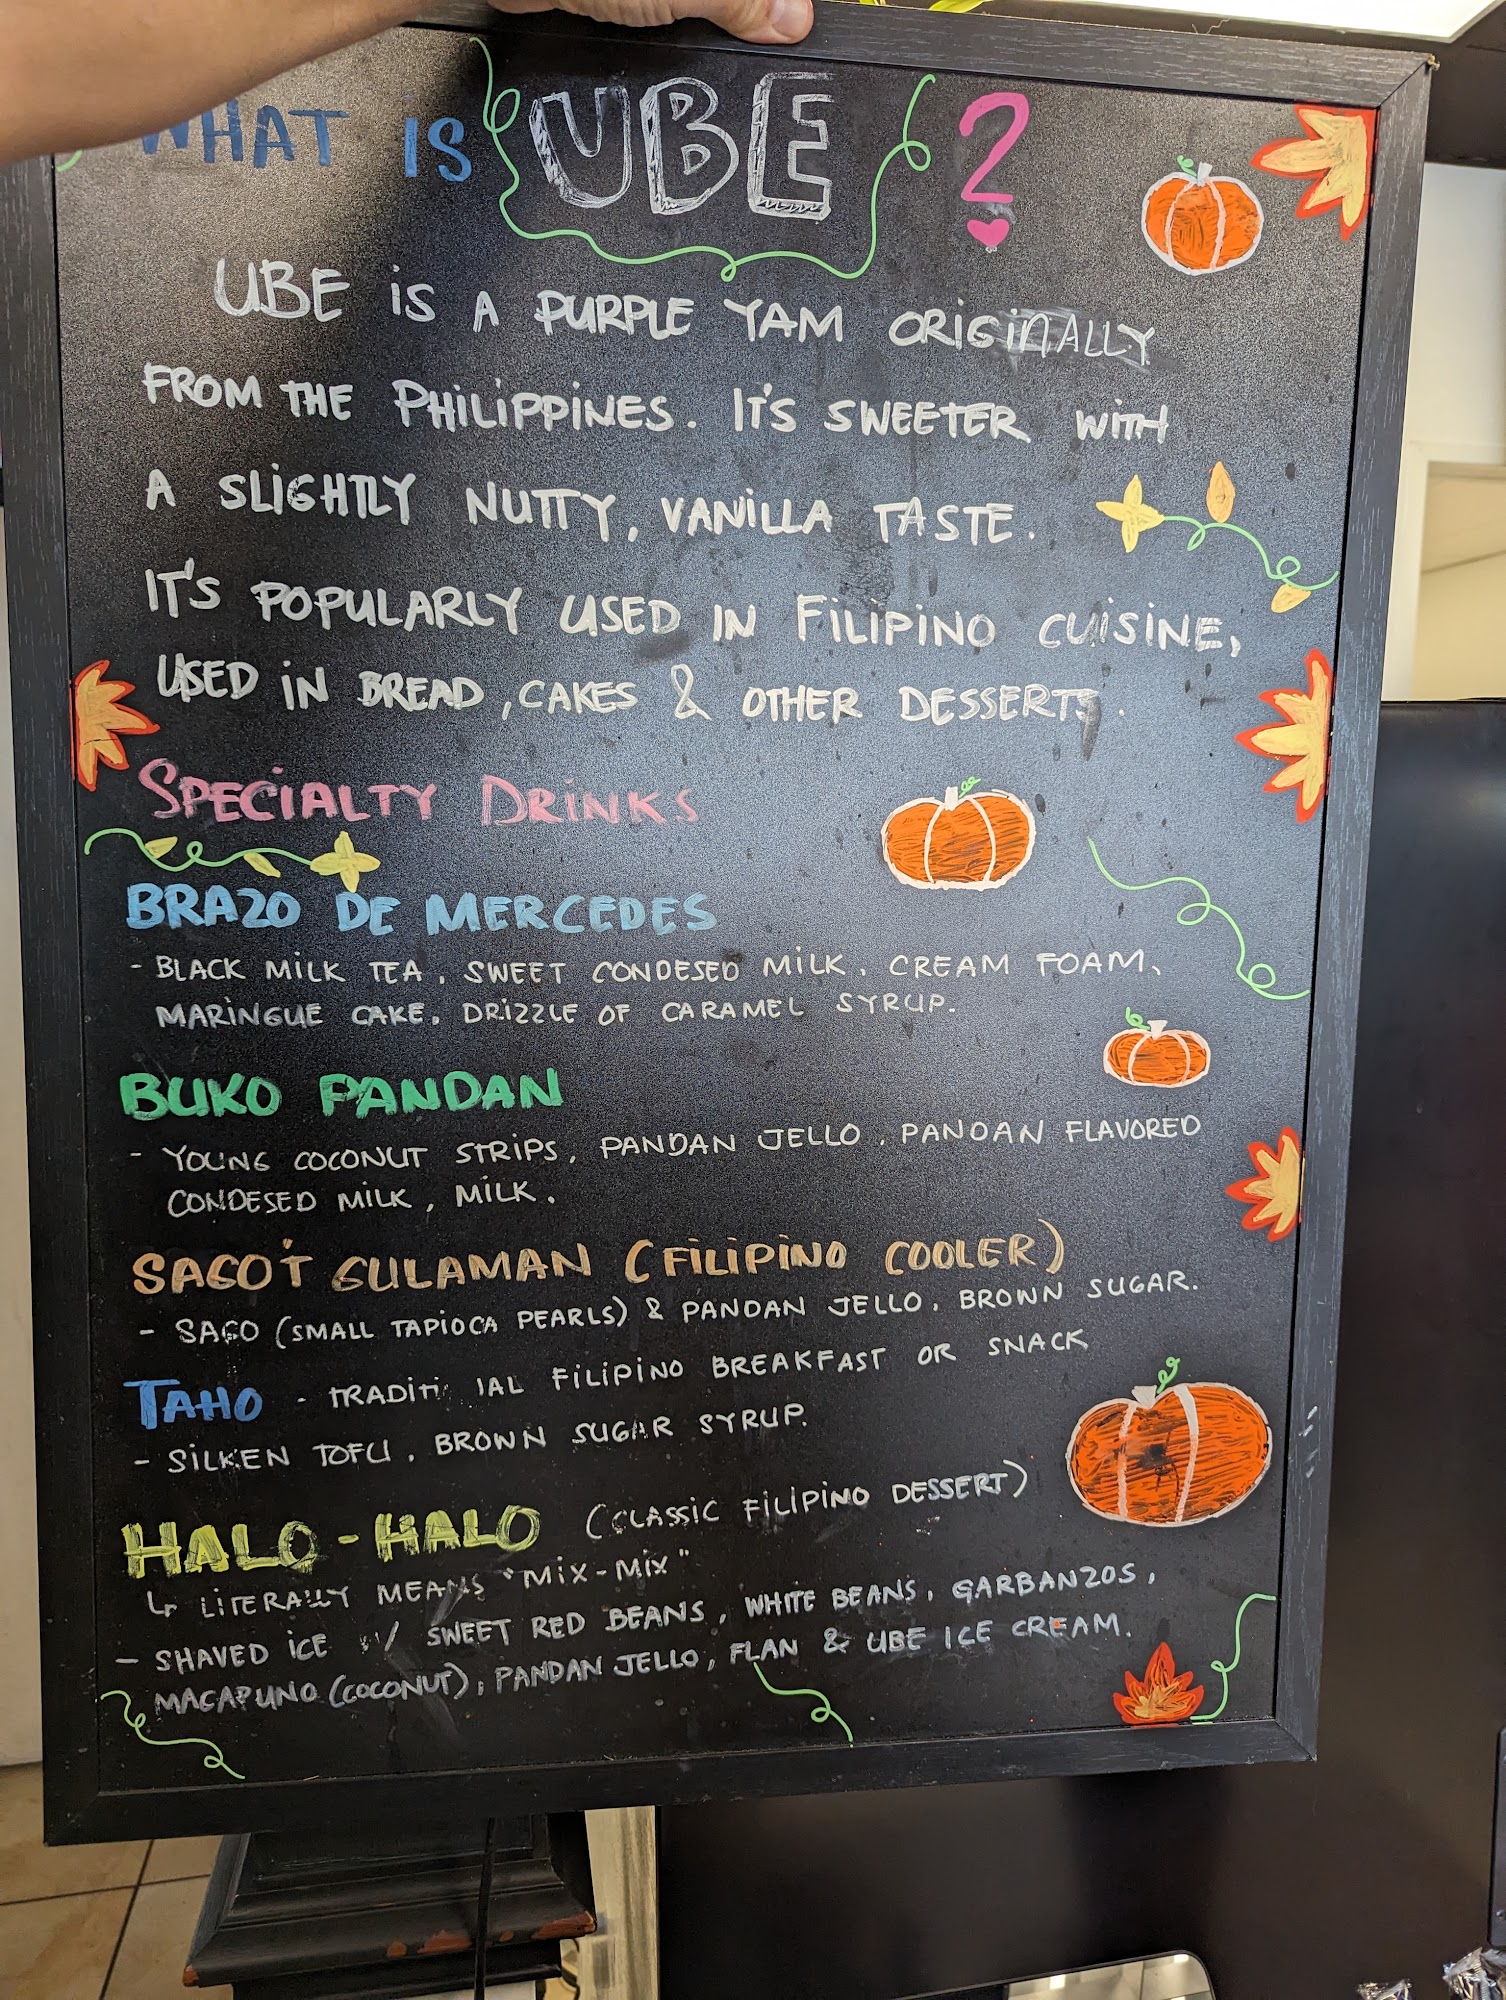 WHAT IS UBE ?
UBE IS A PURPLE YAM ORIGINALLY
FROM THE PHILIPPINES. IT'S SWEETER WITH
A SLIGHTLY NUTTY, VANILLA TASTE.
IT'S POPULARLY USED IN FILIPINO CUISINE,
USED IN BREAD, CAKES & OTHER DESSERTS.
SPECIALTY DRINKS
BRAZO DE MERCEDES
- BLACK MILK TEA, SWEET CONDESED MILK, CREAM FOAM,
MARINGUE CAKE, DRIZZLE OF CARAMEL SYRUP.
BUKO PANDAN
- YOUNG COCONUT STRIPS, PANDAN JELLO, PANDAN FLAVORED
CONDESED MILK, MILK.
SAGO'T GULAMAN (FILIPINO COOLER)
- SAGO (SMALL TAPIOCA PEARLS) & PANDAN JELLO, BROWN SUGAR.
TAHO - TRADITI IAL FILIPINO BREAKFAST OR SNACK
- SILKEN TOFU, BROWN SUGAR SYRUP.
HALO-HALO (CLASSIC FILIPINO DESSERT)
↳ LITERALLY MEANS "MIX-MIX"
- SHAVED ICE W/ SWEET RED BEANS, WHITE BEANS, GARBANZOS,
MACAPUNO (COCONUT), PANDAN JELLO, FLAN & UBE ICE CREAM.